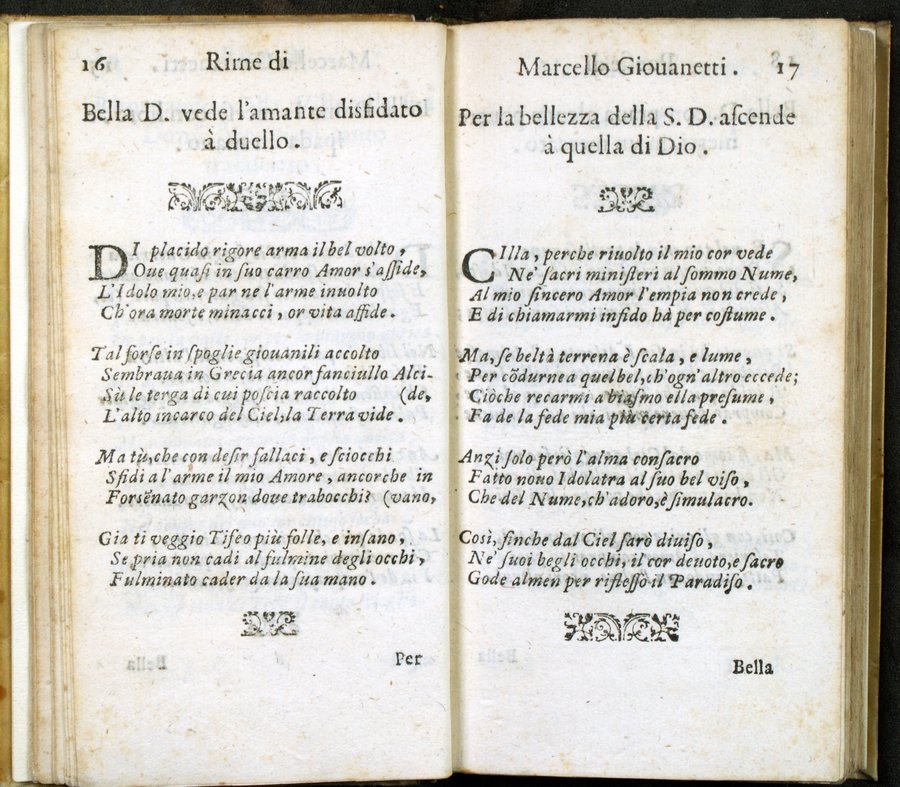 16 Rime di
Bella D. vede l'amante disfidato
à duello.
DI placido rigore arma il bel volto,
Oue quaſi in ſuo carro Amor s'aſſide,
L'Idolo mio, e par ne l'arme inuolto
Ch'ora morte minacci, or vita affide.
Tal forſe in ſpoglie giouanili accolto
Sembraua in Grecia ancor fanciullo Alci-
Sù le terga di cui poſcia raccolto (de,
L'alto incarco del Ciel, la Terra vide.
Ma tù, che con deſir fallaci, e ſciocchi
Sfidi a l'arme il mio Amore, ancorche in
Forsēnato garzon doue trabocchi? (vano,
Gia ti veggio Tifeo più folle, e inſano,
Se pria non cadi al fulmine degli occhi,
Fulminato cader da la ſua mano.
Per
Marcello Giouanetti. 17
Per la bellezza della S. D. aſcende
à quella di Dio.
CIlla, perche riuolto il mio cor vede
Ne' ſacri miniſteri al ſommo Nume,
Al mio ſincero Amor l'empia non crede,
E di chiamarmi infido hà per coſtume.
Ma, ſe beltà terrena è ſcala, e lume,
Per cõdurne a quel bel, ch'ogn'altro eccede;
Cioche recarmi a biaſmo ella preſume,
Fa de la fede mia più certa fede.
Anzi ſolo però l'alma conſacro
Fatto nouo Idolatra al ſuo bel viſo,
Che del Nume, ch'adoro, è ſimulacro.
Così, finche dal Ciel ſarò diuiſo,
Ne' ſuoi begli occhi, il cor deuoto, e ſacro
Gode almen per rifleſſo il Paradiſo.
Bella